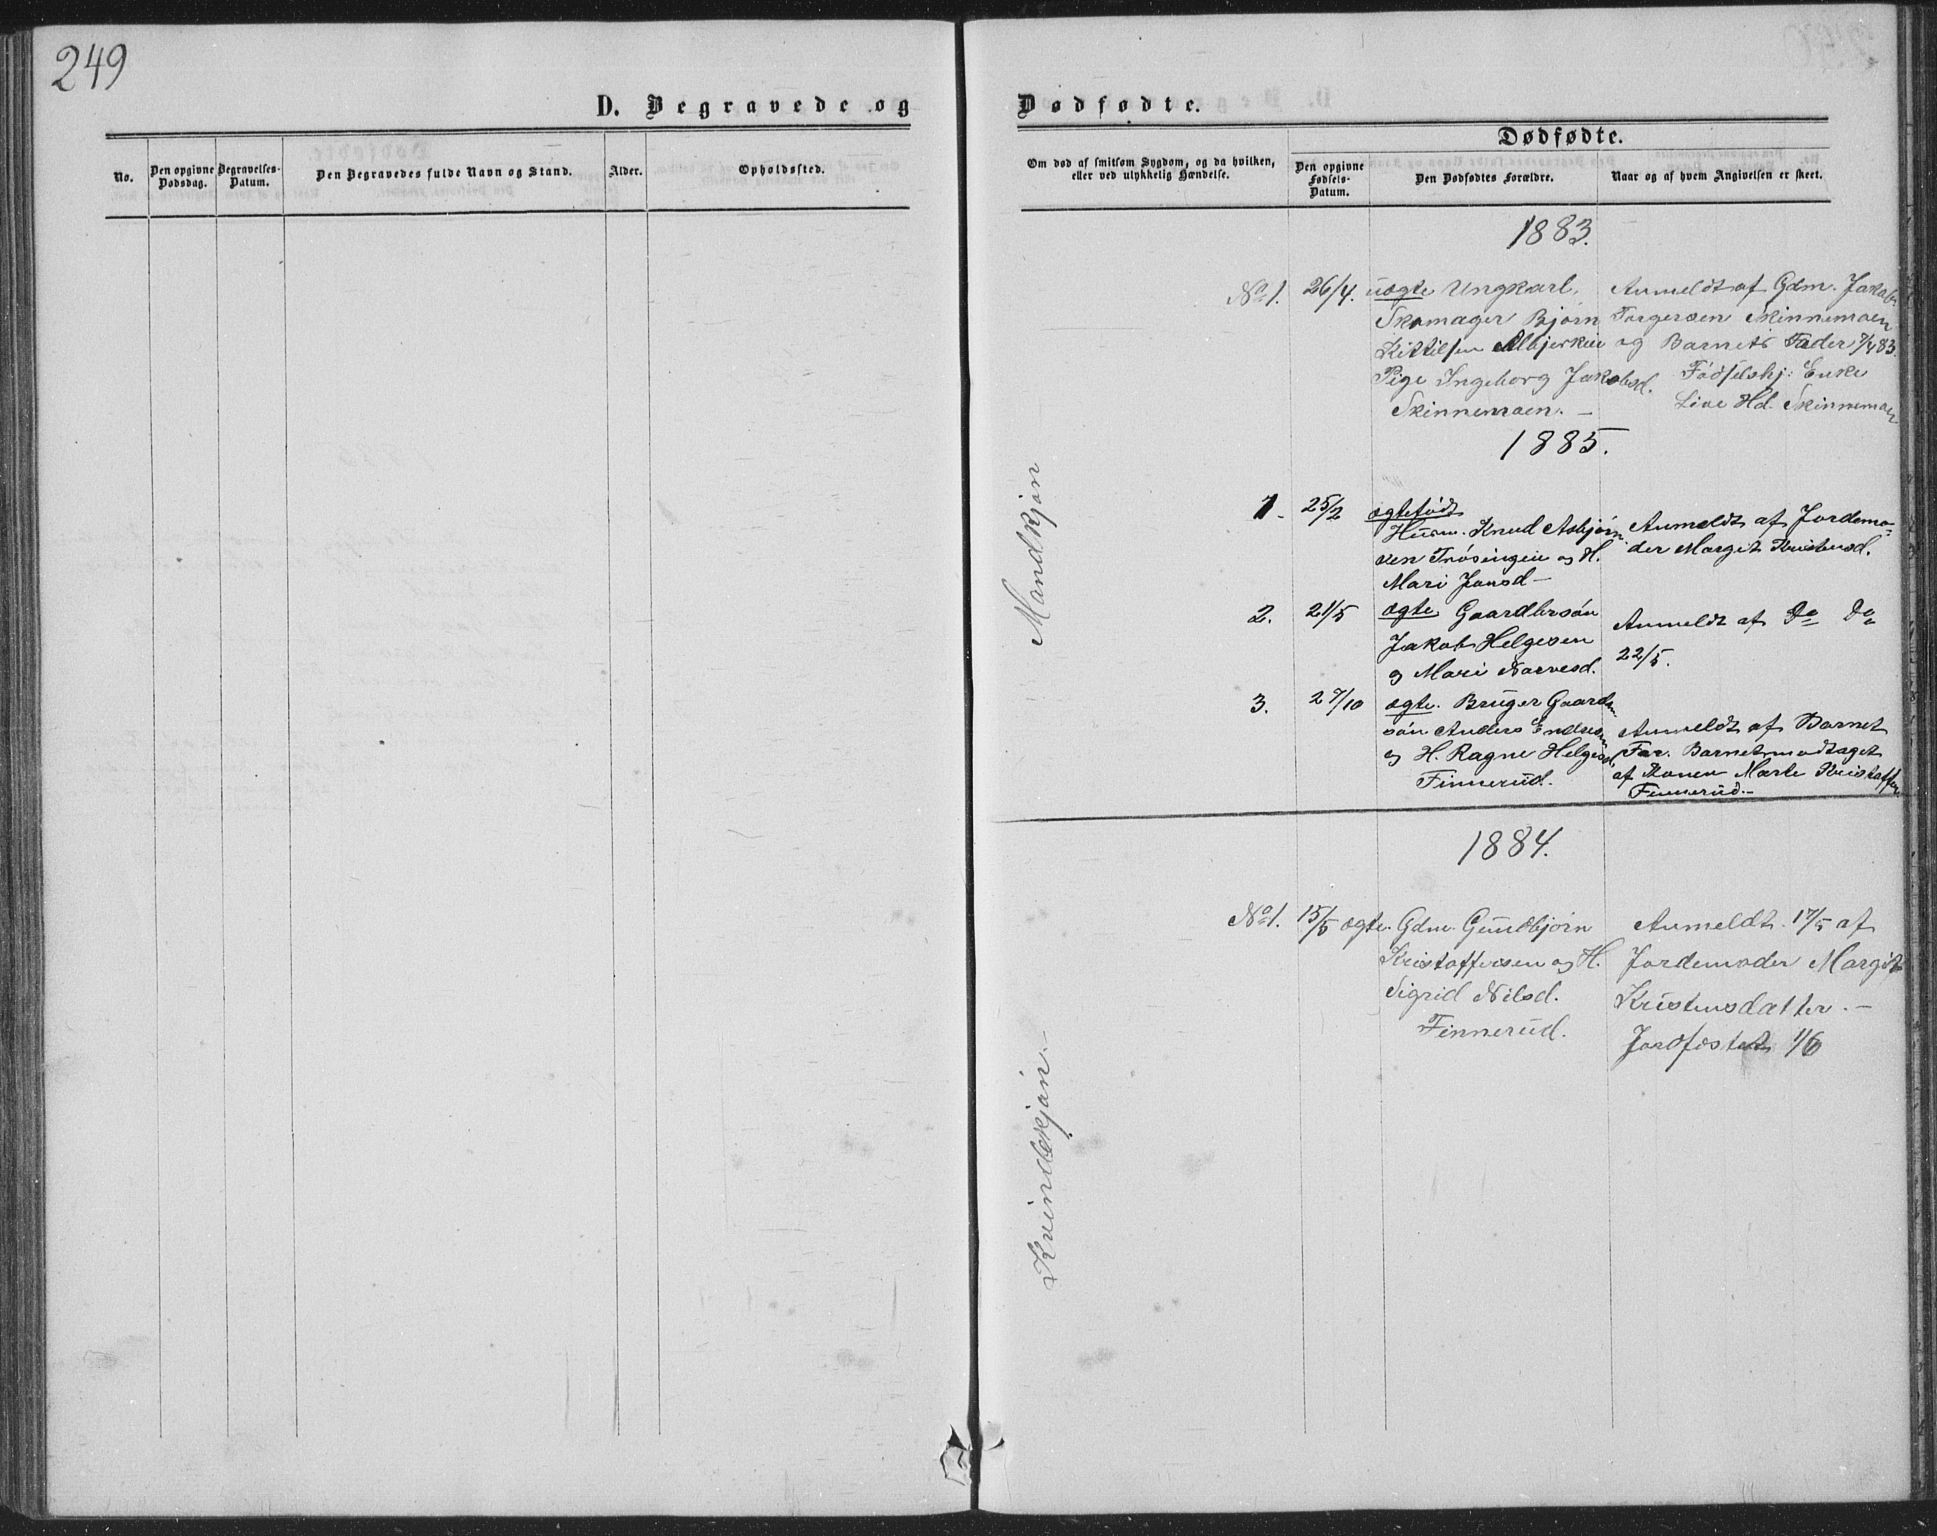 249
D. Begravede og Dødfødte.
No.
Den opgivne Dødsdag.
Begravelses-Datum.
Den Begravedes fulde Navn og Stand.
Alder.
Opholdssted.
Om død af smitsom Sygdom, og da hvilken, eller ved ulykkelig Hændelse.
Dødfødte.
Den opgivne Fødsels-Datum.
Den Dødfødtes Forældre.
Naar og af hvem Angivelsen er skeet.
Mandkjøn
1883.
No 1.
26/4.
uægte Ungkarl,
Skomager Bjørn
Kittilsen
Pige Ingeborg Jakobsd.
Skinnemoen. –
Anmeldt af Gdm. Jakob
Torgersen Skinnemoen
og Barnets Fader
Fødselshj: Enke
Live Hd. Skinnemoen
1885.
1.
25/2
ægtefødt
Husm. Knud Asbjørn
sen og H.
Mari Jonsd –
Anmeldt af Jordemo-
der Margit Kristensd.
2.
21/5
ægte Gaardbrsøn
Jakob Helgesen
og Mari Narvesd.
Anmeldt af Do Do
22/5.
3.
27/10
ægte. Bruger Gaardm
søn Anders Endresen
og H. Ragne Helgesd.
Finnerud.
Anmeldt af Barnet
Far. Barnet modtaget
af Konen Marte Kristoffersd.
Finnerud. –
Kvindekjøn. –
1884.
No 1.
15/5
ægte. Gdm. Gundbjørn
Kristoffersen og H.
Sigrid Nilsd.
Finnerud.
Anmeldt 17/5 af
Jordemoder Margit
Kristensdatter. –
Jordfæstet 1/6